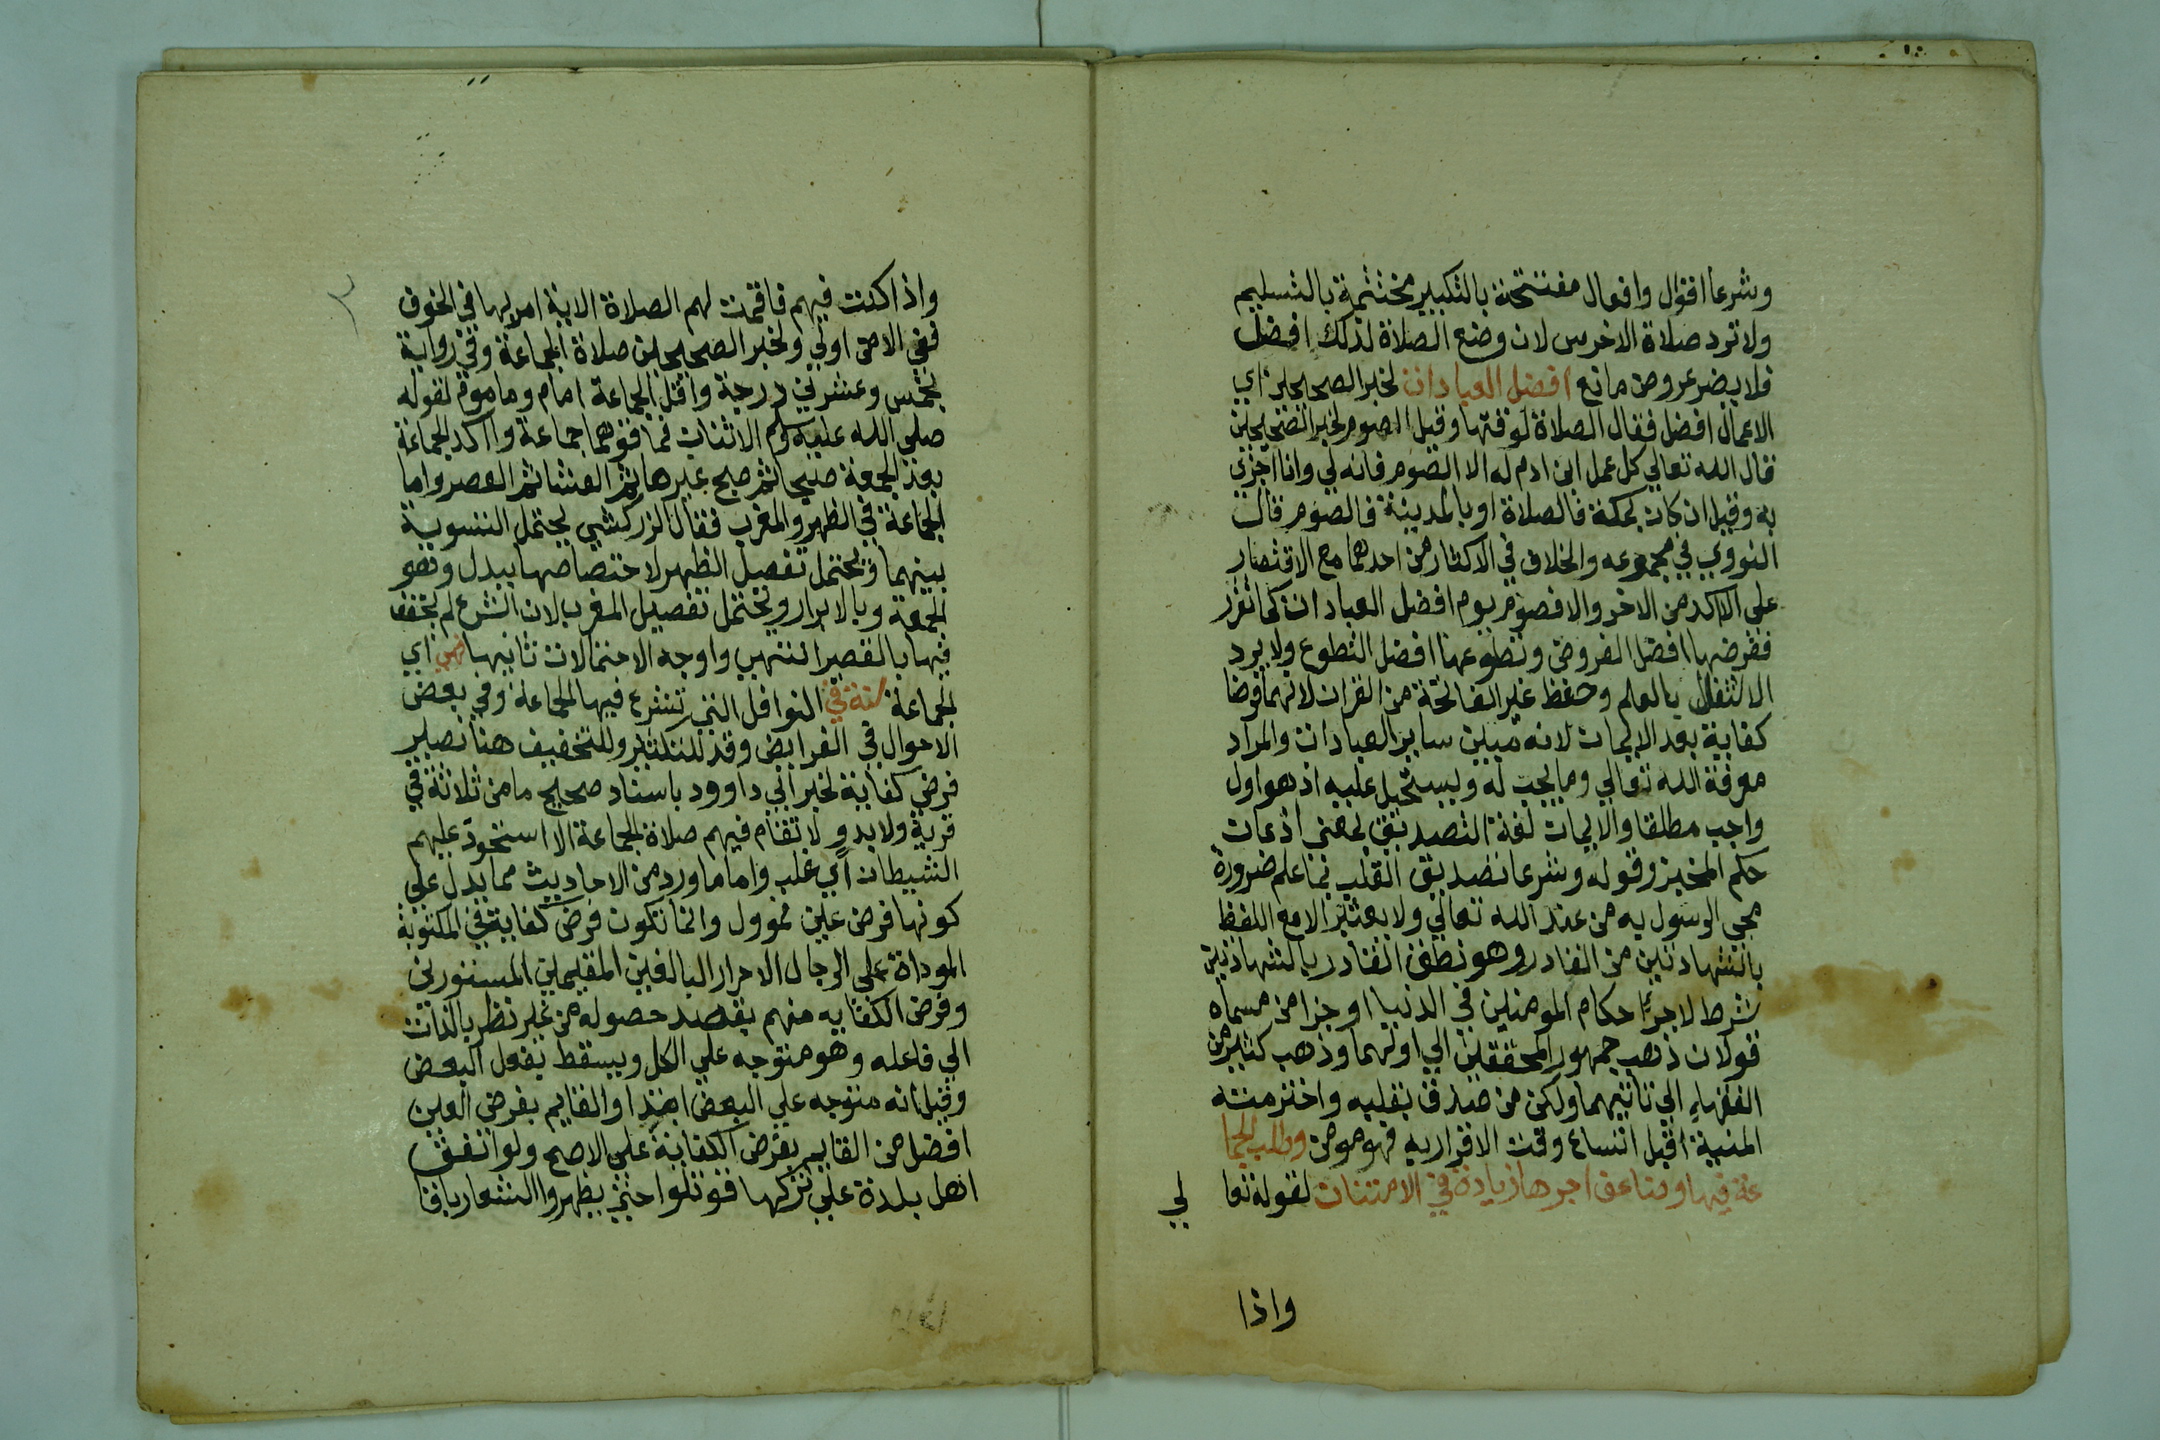 وشرعا اقوال وافعال مفتتحة بالتكبير مختتمة بالتسليم
ولا ترد صلاة الاخرس لان وضع الصلاة لذلك افضل
فلا يضر عروض مانع افضل العبادات لخبر الصحيحين اي
الاعمال افضل فقال الصلاة لوقتها وقيل الصوم لخبر الصحيحين
قال الله تعالي كل عمل ابن ادم له الا الصوم فانه لي وانا اجزي
به وقيل ان كان بمكة فالصلاة او بالمدينة فالصوم قال
النووي في مجموعه والخلاف في الاكثار من احدهما مع الاقتصار
على الاكد من الاخر والا فصوم يوم افضل العبادات كما تقرر
ففرضها افضل الفروض وتطوعها افضل التطوع ولا يرد
الاشتغال بالعلم وحفظ غير الفاتحة من القران لانهما فرضا
كفاية بعد الايمان لانه مبين ساير العبادات والمراد
معرفة الله تعالي وما يجب له ويستحيل عليه اذ هو اول
واجب مطلقا والايمان لغة التصديق بمعنى اذعان
حكم المخبر وقوله وشرعا تصديق القلب بما علم ضرورة
مجي الرسول به من عند الله تعالي ولا يعتبر الا مع اللفظ
بالشهادتين من القادر وهو نطق القادر بالشهادتين
شرط لاجراء احكام المومنين في الدنيا او جزا من مسماه
قولان ذهب جمهور المحققين الي اولهما وذهب كثير من
الفقهاء الي ثانيهما ولكن من صدق بقلبه واخترمته
المنية قبل اتساع وقت الاقرار به فهو مومن وطلب الجما
عة فيها وضاعف اجرها زيادة في الامتنان لقوله تعا لي
واذا
واذا كنت فيهم فاقمت لهم الصلاة الاية امر بها في الخوف
ففي الامن اولي ولخبر الصحيحين صلاة الجماعة وفي رواية
بخمس وعشرين درجة واقل الجماعة امام وماموم لقوله
صلي الله عليه وسلم الاثنان فما فوقهما جماعة واكد الجماعة
بعد الجمعة صبحها ثم صبح غيرها ثم العشا ثم العصر واما
الجماعة في الظهر والمغرب فقال الزركشي يحتمل التسوية
بينهما ويحتمل تفضيل الظهر لاختصاصها ببدل وهو
الجمعة وبالابراد ويحتمل تفضيل المغرب لان الشرع لم يخفف
فيها بالقصر انتهي واوجه الاحتمالات ثانيها فهي اي
الجماعة سنة في النوافل التي تشرع فيها الجماعة وفي بعض
الاحوال في الفرايض وقد للتكثير وللتخفيف هنا تصير
فرض كفاية لخبر ابي داوود باسناد صحيح ما من ثلاثة في
قرية ولا بدو لا تقام فيهم صلاة الجماعة الا استحوذ عليهم
الشيطان اي غلب واما ما ورد من الاحاديث مما يدل علي
كونها فرض عين فموول وانما تكون فرض كفاية في المكتوبة
الموداة علي الرجال الاحرار البالغين المقيمين المستورين
وفرض الكفايه منهم يقصد حصوله من غير نظر بالذات
الي فاعله وهو متوجه علي الكل ويسقط بفعل البعض
وقيل انه متوجه علي البعض ابتداء والقايم بفرض العين
افضل من القايم بفرض الكفاية علي الاصح ولو اتفق
اهل بلدة علي تركها قوتلوا حتي يظهروا الشعار باقا